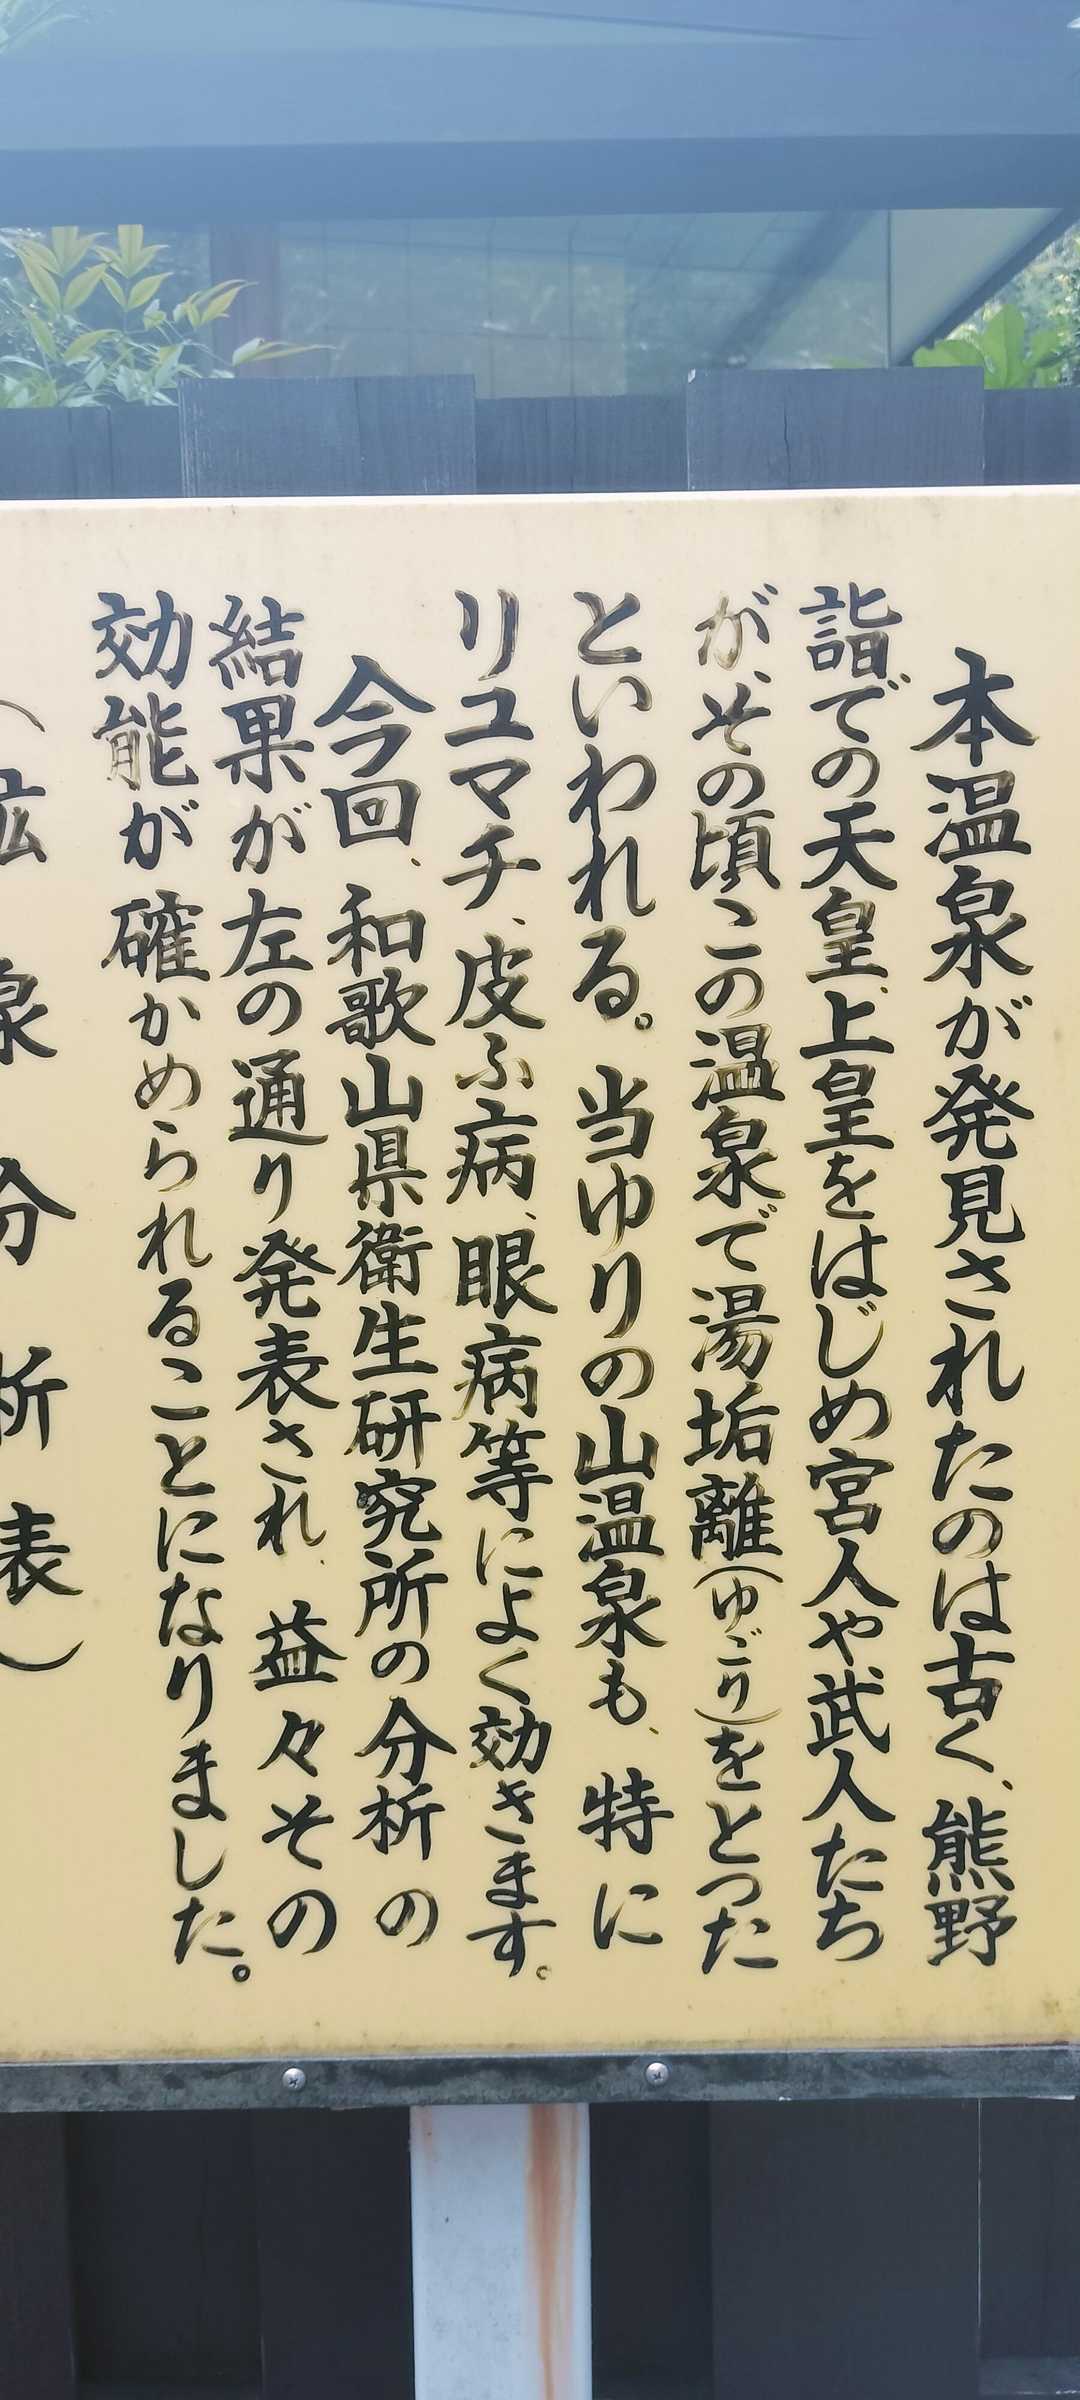 本温泉が発見されたのは古く、熊野
詣での天皇、上皇をはじめ宮人や武人たち
が、その頃この温泉で湯垢離(ゆごり)をとった
といわれる。当ゆりの山温泉も、特に
リユマチ、皮ふ病、眼病等によく効きます。
今回、和歌山県衛生研究所の分析の
結果が左の通り発表され、益々その
効能が確かめられることになりました。
(鉱泉分析表)